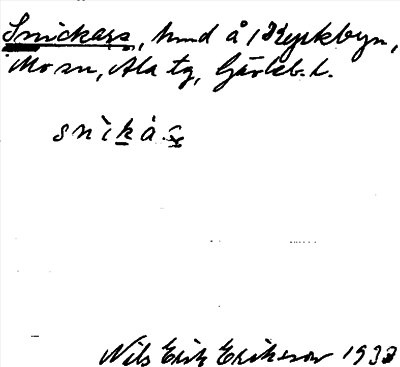 Snickars, hmd å 1 Kyrkbyn,
Mo sn, Ala tg, Gävleb. l.
snìkàṣ
Nils Erik Eriksson 1932